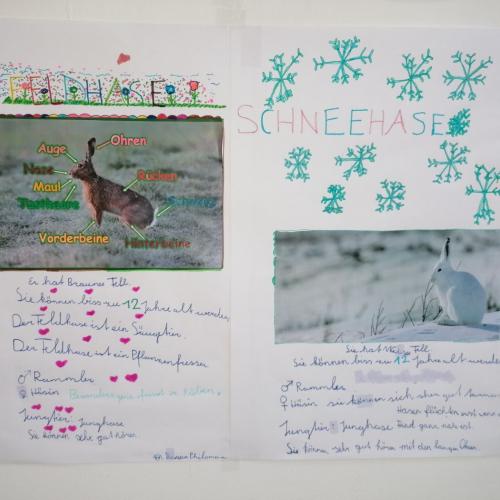 FELDHASE
Auge
Ohren
Nase
Rücken
Maul
Tasthaare
Schwanz
Vorderbeine
Hinterbeine
Er hat Braunes Fell.
Sie können biss zu 12 Jahre alt werden.
Der Feldhase ist ein Säugtir.
Der Feldhase ist ein Pflanzenfresser.
♂ Rammler
♀ Häsin
Jungtier: Junghase
Sie können sehr gut hören.
SCHNEEHASE
Sie hat Fell.
Sie können biss zu 12 Jahre alt werde
♂ Rammler
♀ Häsin sie können sich sher gut
Hasen flüchten erst wenn
Jungtier: Junghase Feind ganz nah ist.
Sie können sehr gut hören mit den langen Ohren.